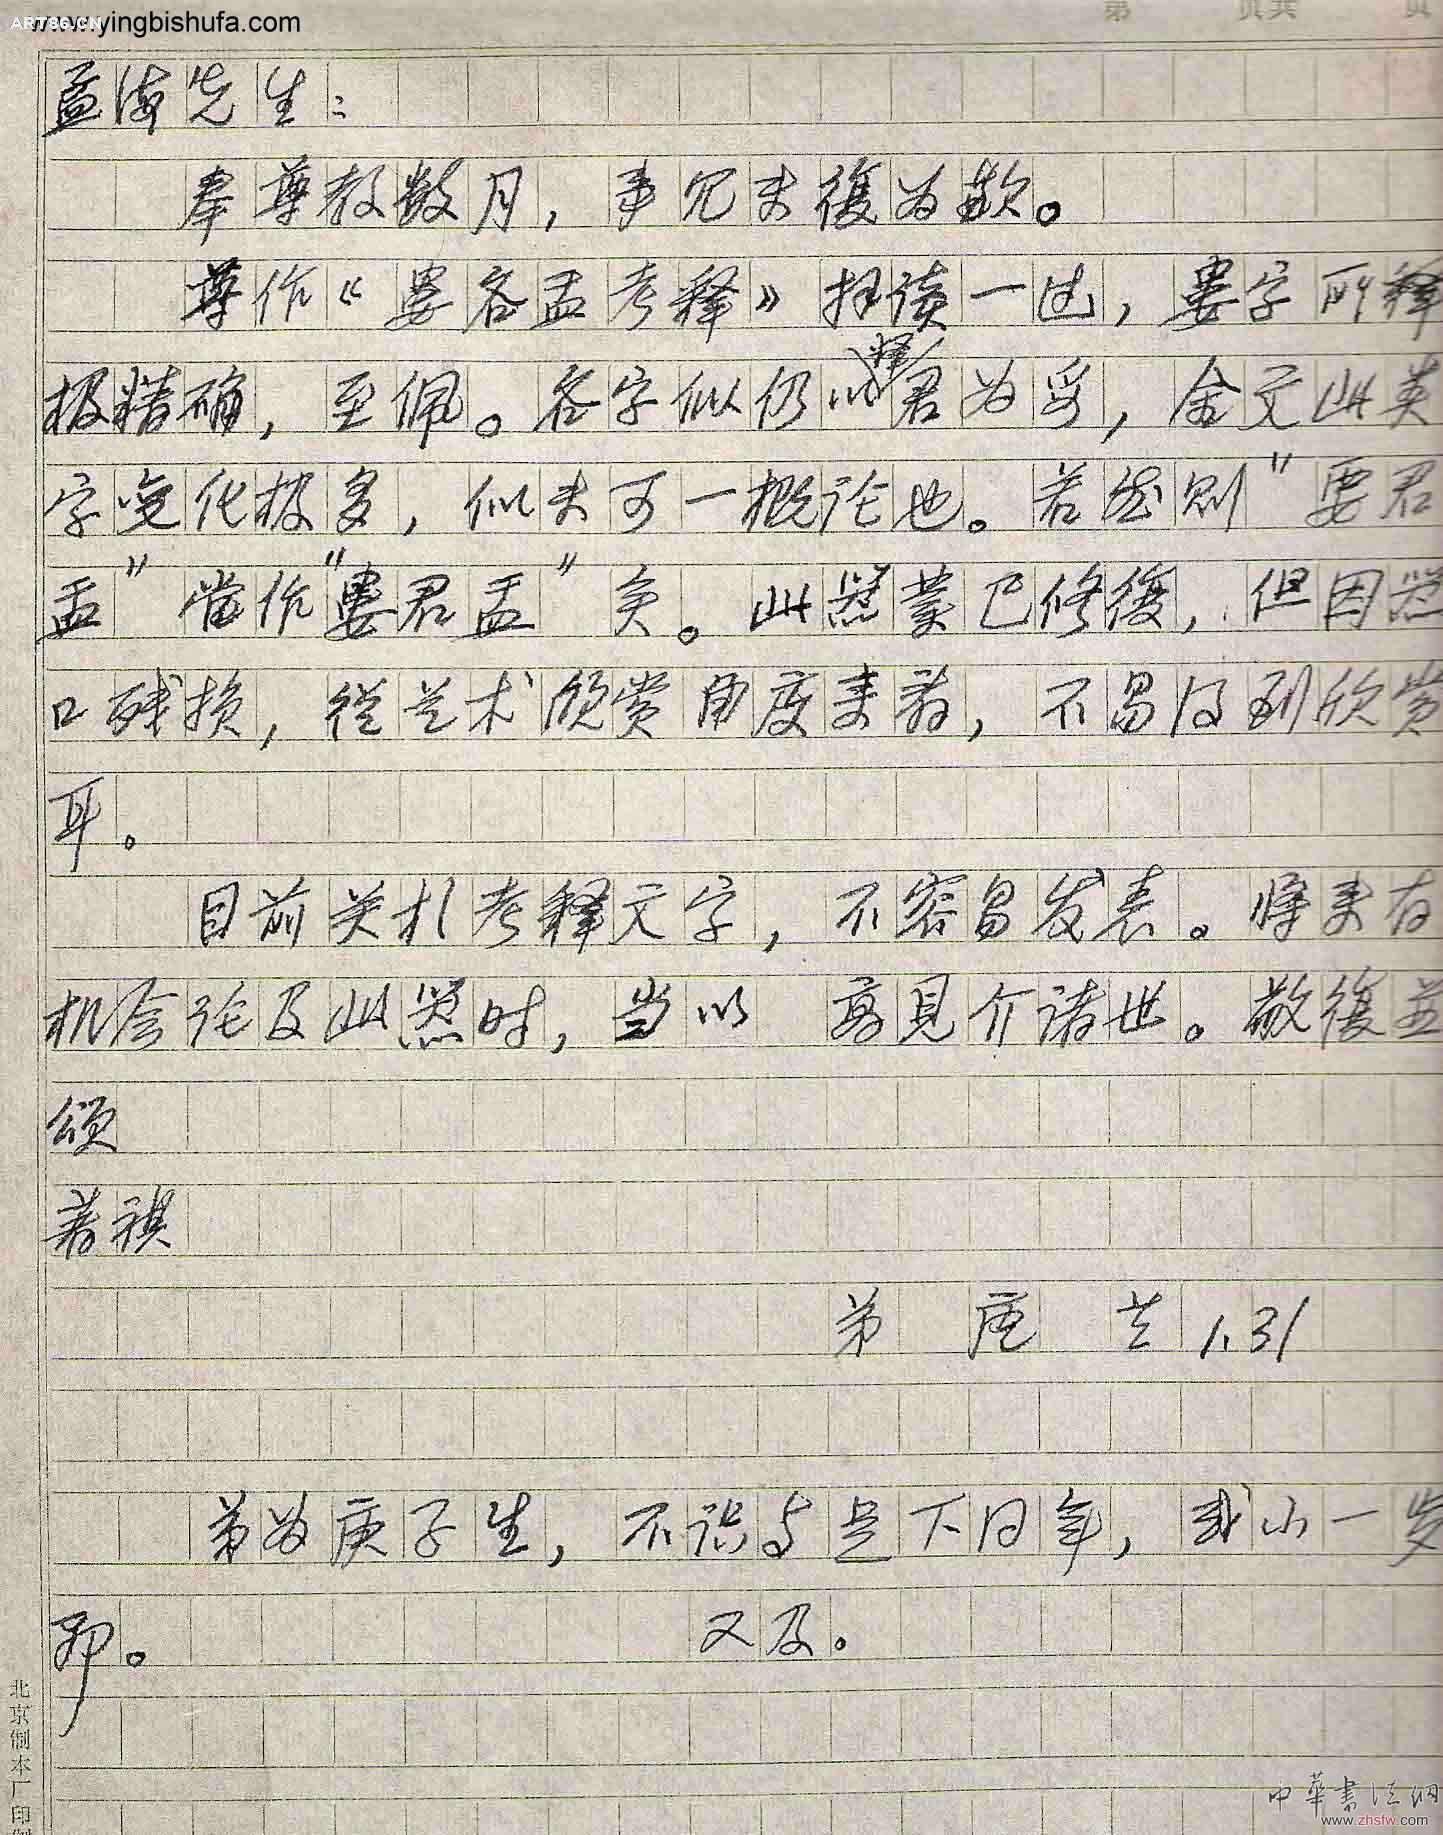 www.yingbishufa.com
ART86.CN
第 页共 页
孟海先生：
奉尊教数月，事冗未復为歉。
尊作《婁各盂考释》拜读一过，婁字所释
极精确，至佩。各字似仍以释君为妥，金文此类
字变化极多，似未可一概论也。若然则"要君
盂"当作"婁君盂"矣。此器業已修復，但因器
口残损，從艺术欣赏角度来看，不易得到欣赏
耳。
目前关於考释文字，不容易发表。将来有
机会论及此器时，当以 高見介诸世。敬復並
颂
著祺
弟 唐 兰 1.31
弟为庚子生，不识与是下同年，或小一岁
耶。 又及。
北京制本厂印制
中華書法網
www.zhsfw.com